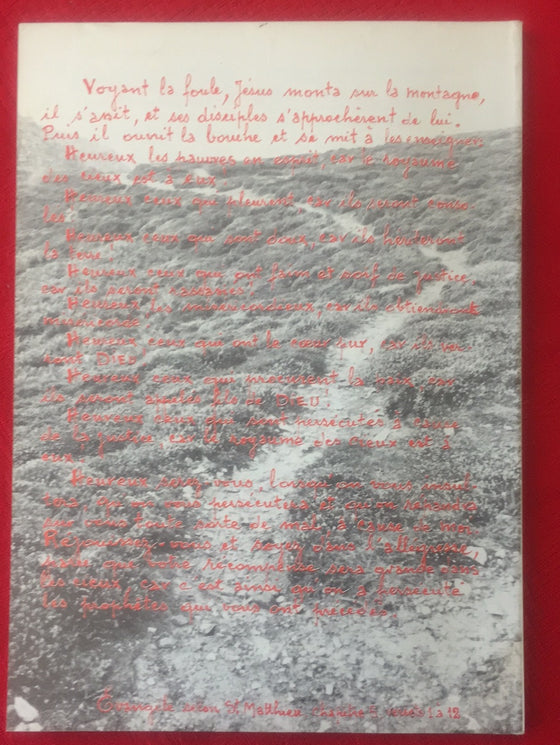 Voyant la foule, Jésus monta sur la montagne,
il s'assit, et ses disciples s'approchèrent de lui.
Puis il ouvrit la bouche et se mit à les enseigner:
Heureux les pauvres en esprit, car le royaume
des cieux est à eux!
Heureux ceux qui pleurent, car ils seront conso
lés!
Heureux ceux qui sont doux, car ils hériteront
la terre!
Heureux ceux qui ont faim et soif de justice,
car ils seront rassasiés!
Heureux les miséricordieux, car ils obtiendront
miséricorde!
Heureux ceux qui ont le cœur pur, car ils ver
ront DIEU!
Heureux ceux qui procurent la paix, car
ils seront appelés fils de DIEU!
Heureux ceux qui sont persécutés à cause
de la justice, car le royaume des cieux est à
eux!
Heureux serez-vous, lorsqu'on vous insul
tera, qu'on vous persécutera et qu'on répandra
sur vous toute sorte de mal, à cause de moi.
Réjouissez-vous et soyez dans l'allégresse,
parce que votre récompense sera grande dans
les cieux, car c'est ainsi qu'on a persécuté
les prophètes qui vous ont précédés.
Evangile selon St Matthieu chapitre 5 1 à 12